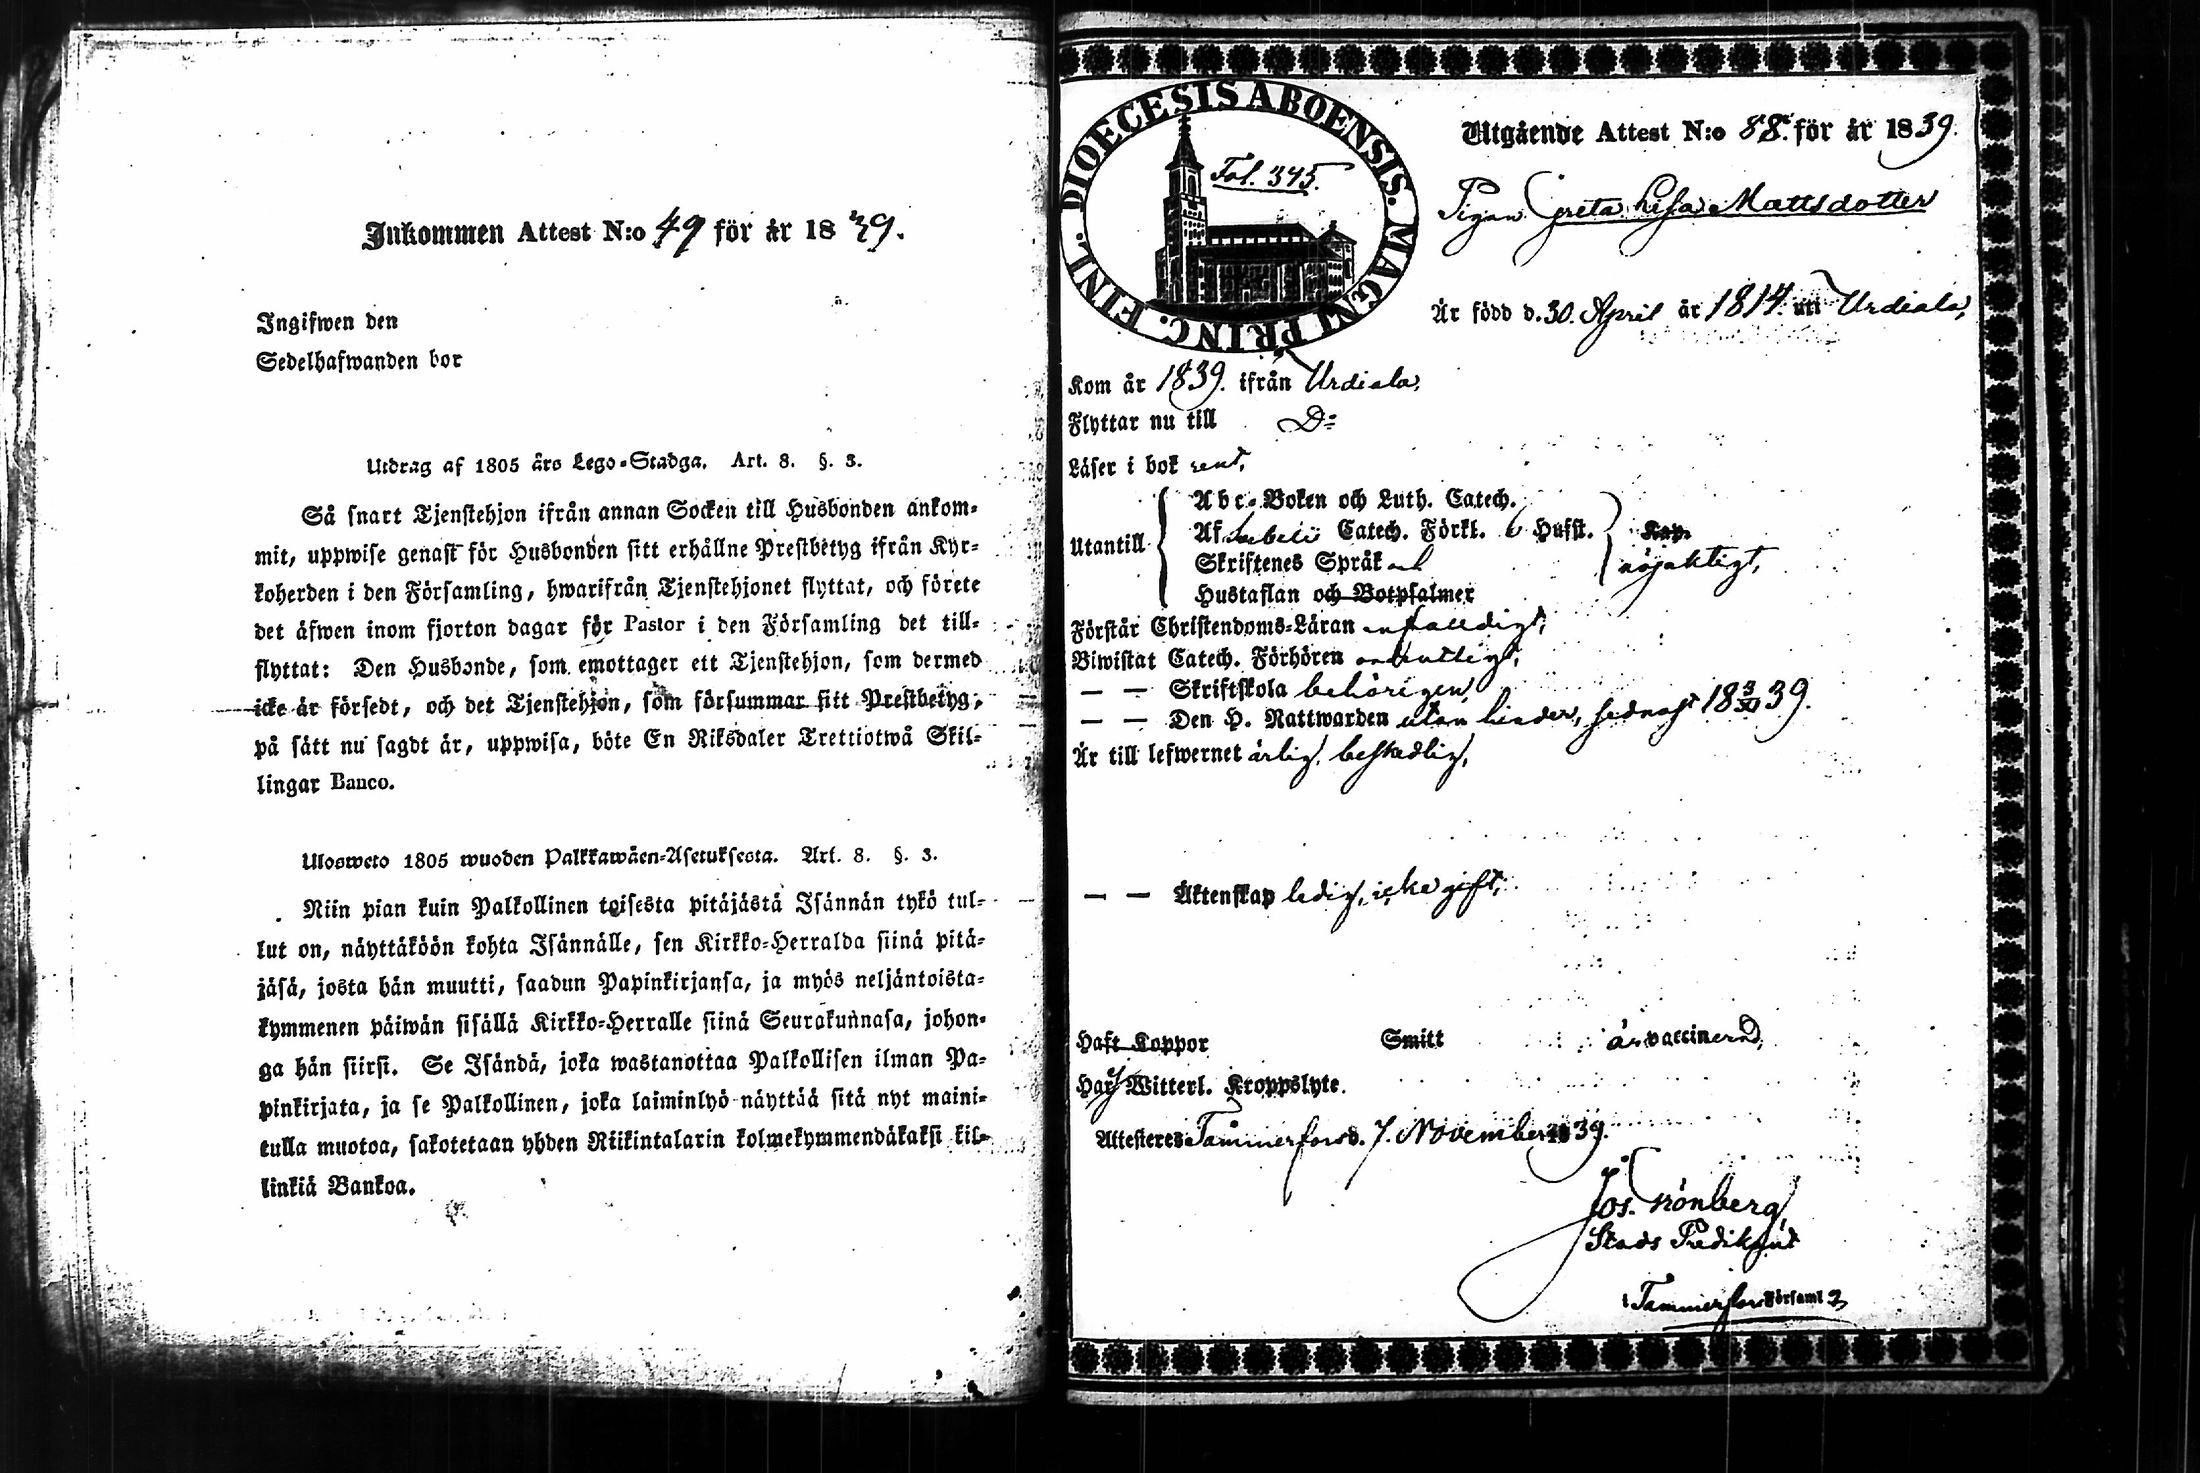 Inkommen Attest N:o 49 för år 1839.
Ingifwen den
Sedelhafwanden bor
Utdrag af 1805 års Lego-Stadga. Art. 8. §. 3.
Så snart Tjenstehjon ifrån annan Socken till Husbonden ankom-
mit, uppwise genast för Husbonden sitt erhållne Prestbetyg ifrån Kyr-
koherden i den Församling, hwarifrån Tjenstehjonet flyttat, och förete
det äfwen inom fjorton dagar för Pastor i den Församling det till-
flyttat: Den Husbonde, som emottager ett Tjenstehjon, som dermed
icke är försedt, och det Tjenstehjon, som försummar sitt Prestbetyg,
på sätt nu sagdt är, uppwisa, böte En Riksdaler Trettiotwå Skil-
lingar Banco.
Ulosweto 1805 wuoden Palkkawäen-Asetuksesta. Art. 8. §. 3.
Niin pian kuin Palkollinen toisesta pitäjästä Isännän tykö tul-
lut on, näyttäköön kohta Isännälle, sen Kirkko-Herralda siinä pitä-
jäsä, josta hän muutti, saadun Papinkirjansa, ja myös neljäntoista-
kymmenen päiwän sisällä Kirkko-Herralle siinä Seurakunnasa, johon-
ga hän siirsi. Se Isändä, joka wastanottaa Palkollisen ilman Pa-
pinkirjata, ja se Palkollinen, joka laiminlyö näyttää sitä nyt maini-
tulla muotoa, sakotetaan yhden Riikintalarin kolmekymmendäkaksi kil-
linkiä Bankoa.
DIOECESIS ABOENSIS. MAGNI PRINC. FINL.
Fol. 345.
Utgående Attest N:o 88. för år 1839.
Pigan Greta Lisa Mattsdotter
Är född d. 30. April år 1814. uti Urdiala,
Kom år 1839. ifrån Urdiala,
Flyttar nu till D:
Läser i bok rent,
Utantill
Abc-Boken och Luth. Catech.
Af Svebelii Catech. Förkl. 6 Hufst. Kap.
Skriftenes Språk och nöjaktigt,
Hustaflan och Botpsalmer
Förstår Christendoms-Läran enfaldigt,
Biwistat Catech. Förhören ordentligt,
— — Skriftskola behörigen,
— — Den H. Nattwarden utan hinder, sednast 18 3/XI 39.
Är till lefwernet ärlig, beskedlig,
— — Äktenskap ledig, icke gift,
Haft Koppor Smitt är vaccinerad,
Har ej Witterl. Kroppslyte.
Attesteres Tammerfors d. 7. November 1839.
Jos. Grönberg
Stads Predikant
i Tammerfors Församl